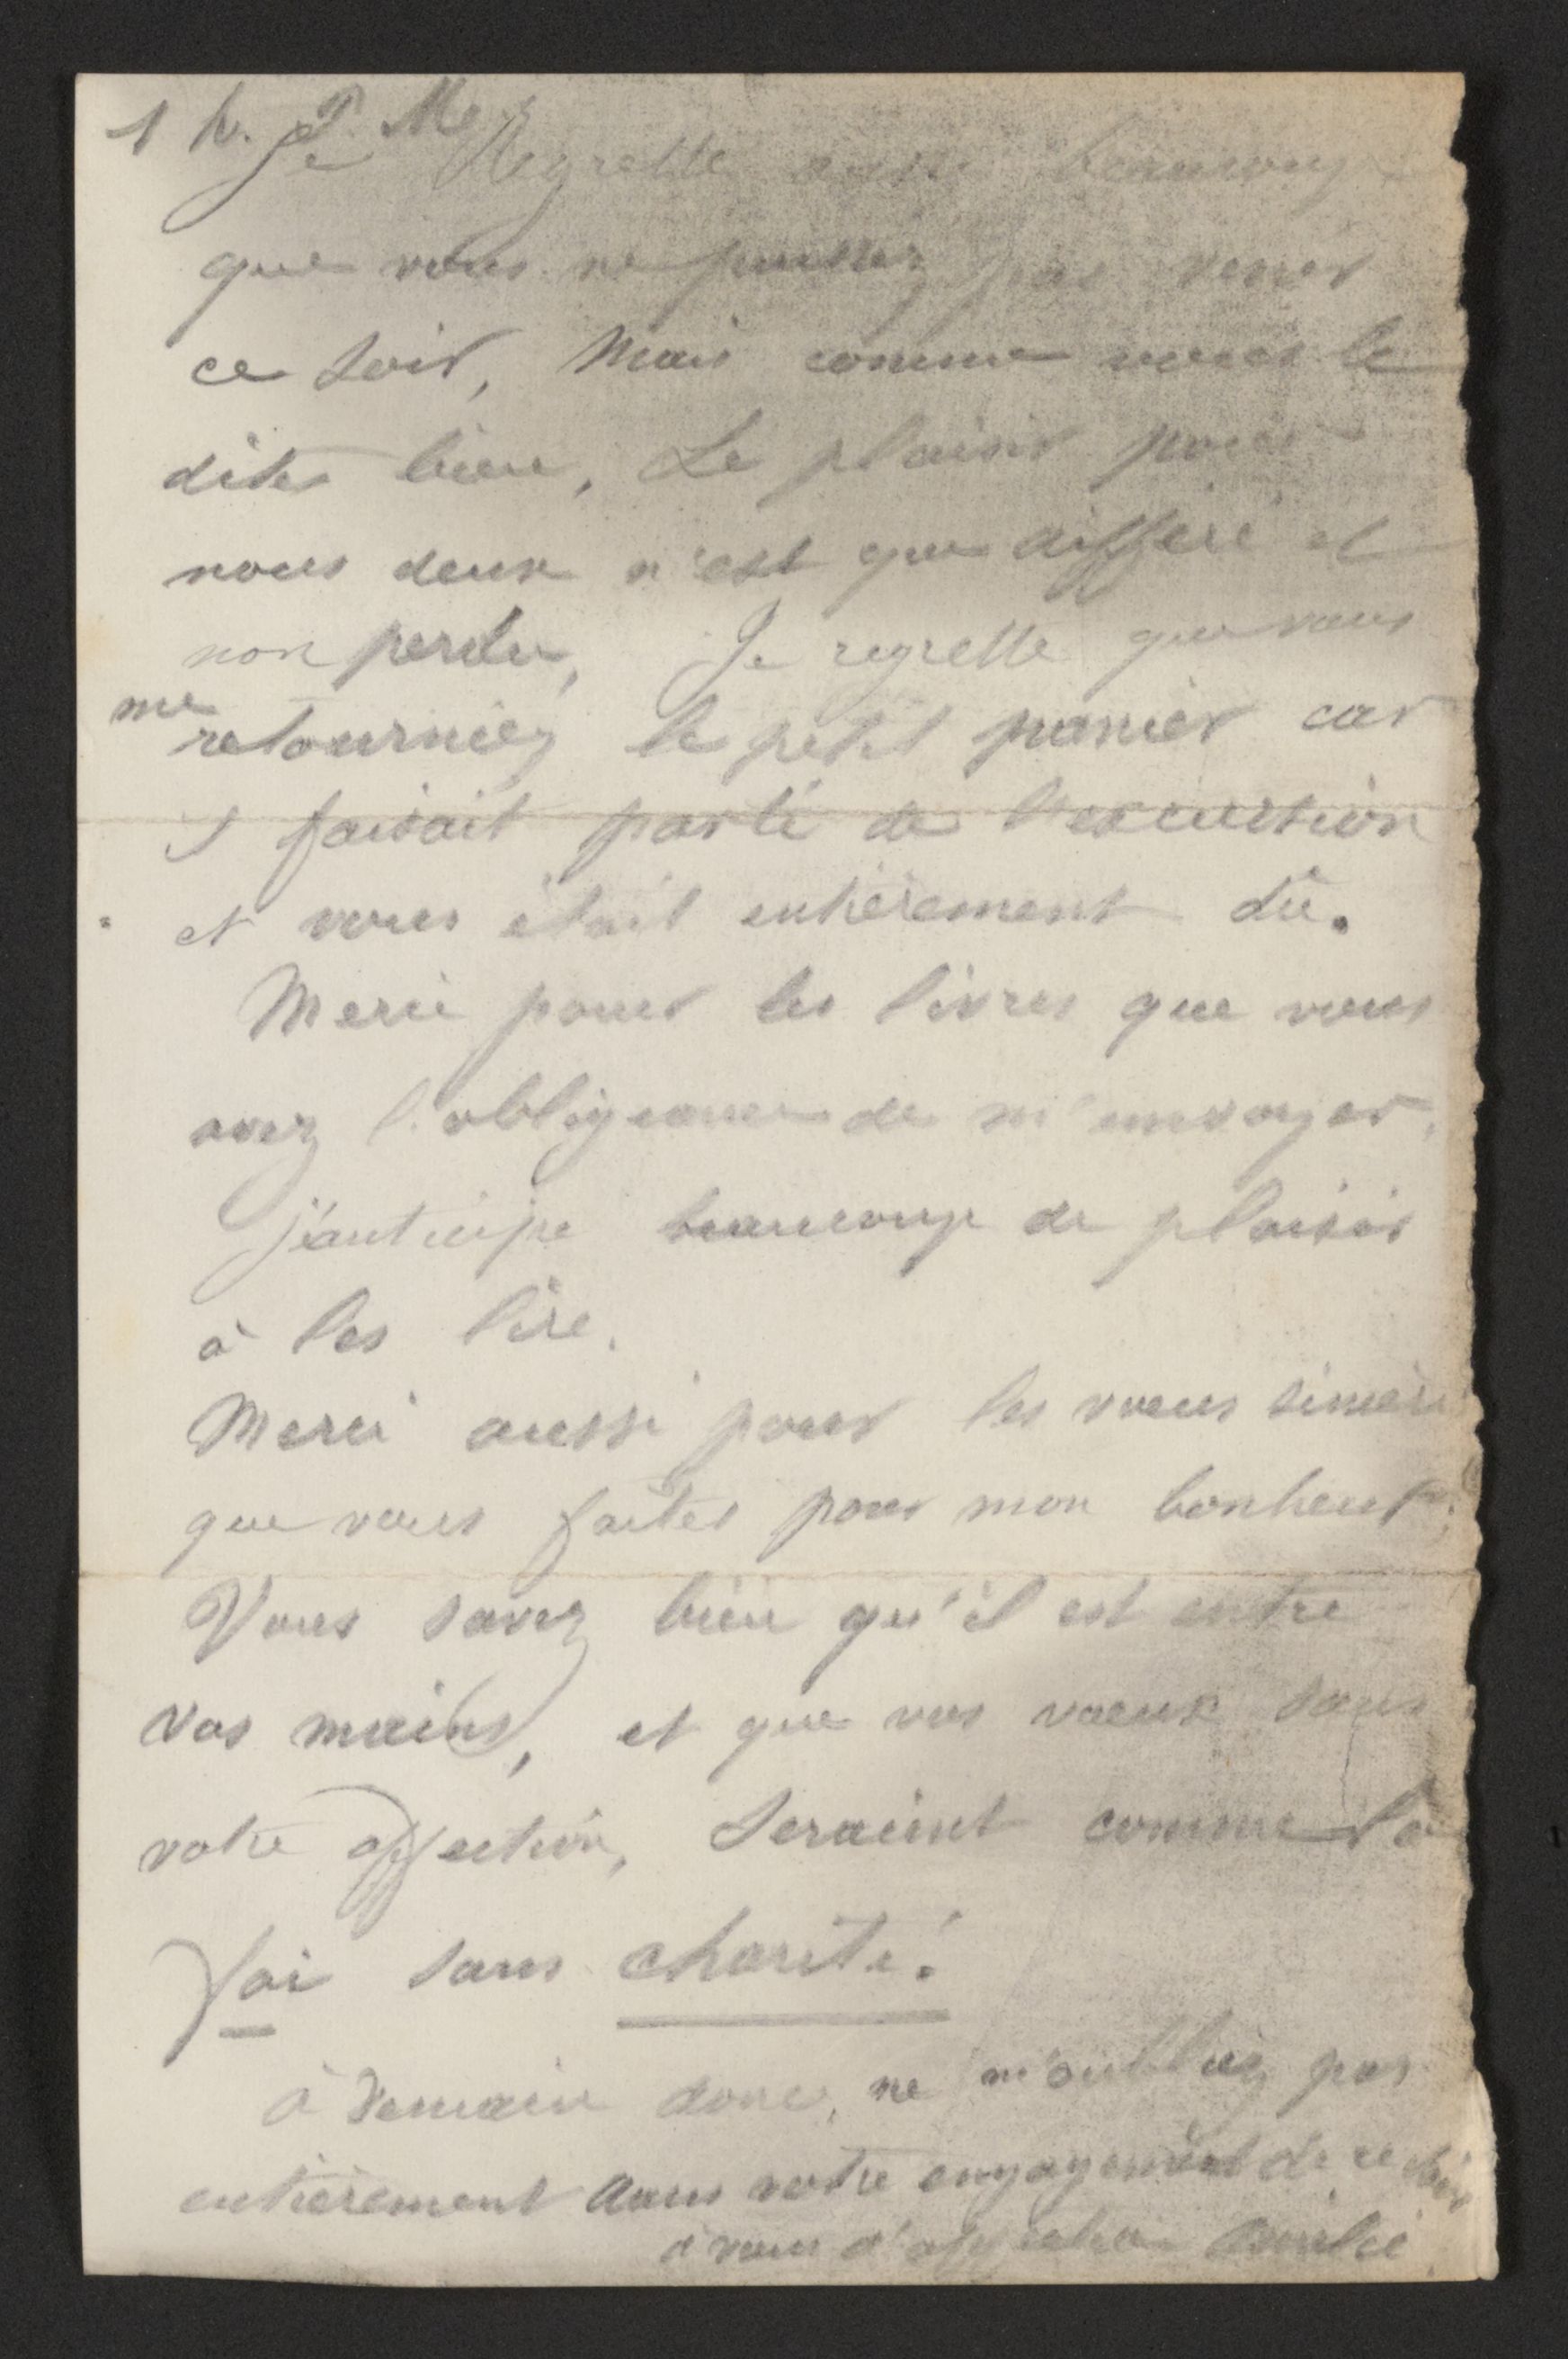 1 h. P. M.
Je Regrette aussi beaucoup
que vous ne puissiez pas venir
ce soir, Mais comme vous le
dites bien, Le plaisir pour
nous deux n'est que differé et
non perdu, Je regrette que vous
me
retourniez le petit panier car
il faisait parti de l'excursion
et vous était entièrement dû.
Merci pour les livres que vous
avez l'obligeance de m'envoyer,
j'anticipe beaucoup de plaisir
à les lire.
Merci aussi pour les voeux sincères
que vous faites pour mon bonheur;
Vous savez bien qu'il est entre
vos mains, et que vos voeux sans
votre affection, Seraient comme la
foi sans charité!
à Demain donc, ne m'oubliez pas
entièrement dans votre engagement de ce soir
à vous d'affection Amélie